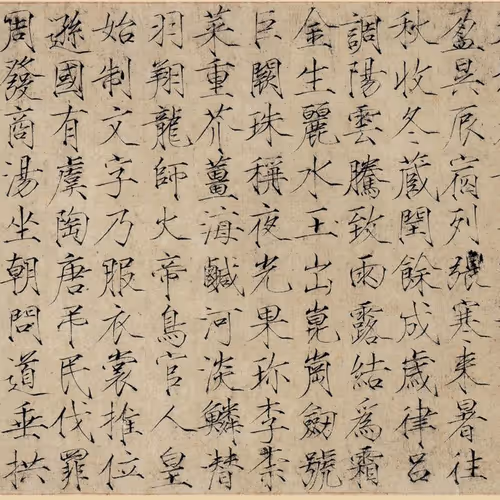 盈昃辰宿列張寒来暑往
秋收冬蔵閏餘成歳律呂
調陽雲騰致雨露結爲霜
金生麗水玉出崑崗劔號
巨闕珠稱夜光果珎李柰
菜重芥薑海鹹河淡鱗潛
羽翔龍師火帝鳥官人皇
始制文字乃服衣裳推位
遜國有虞陶唐吊民伐罪
周發商湯坐朝問道垂拱